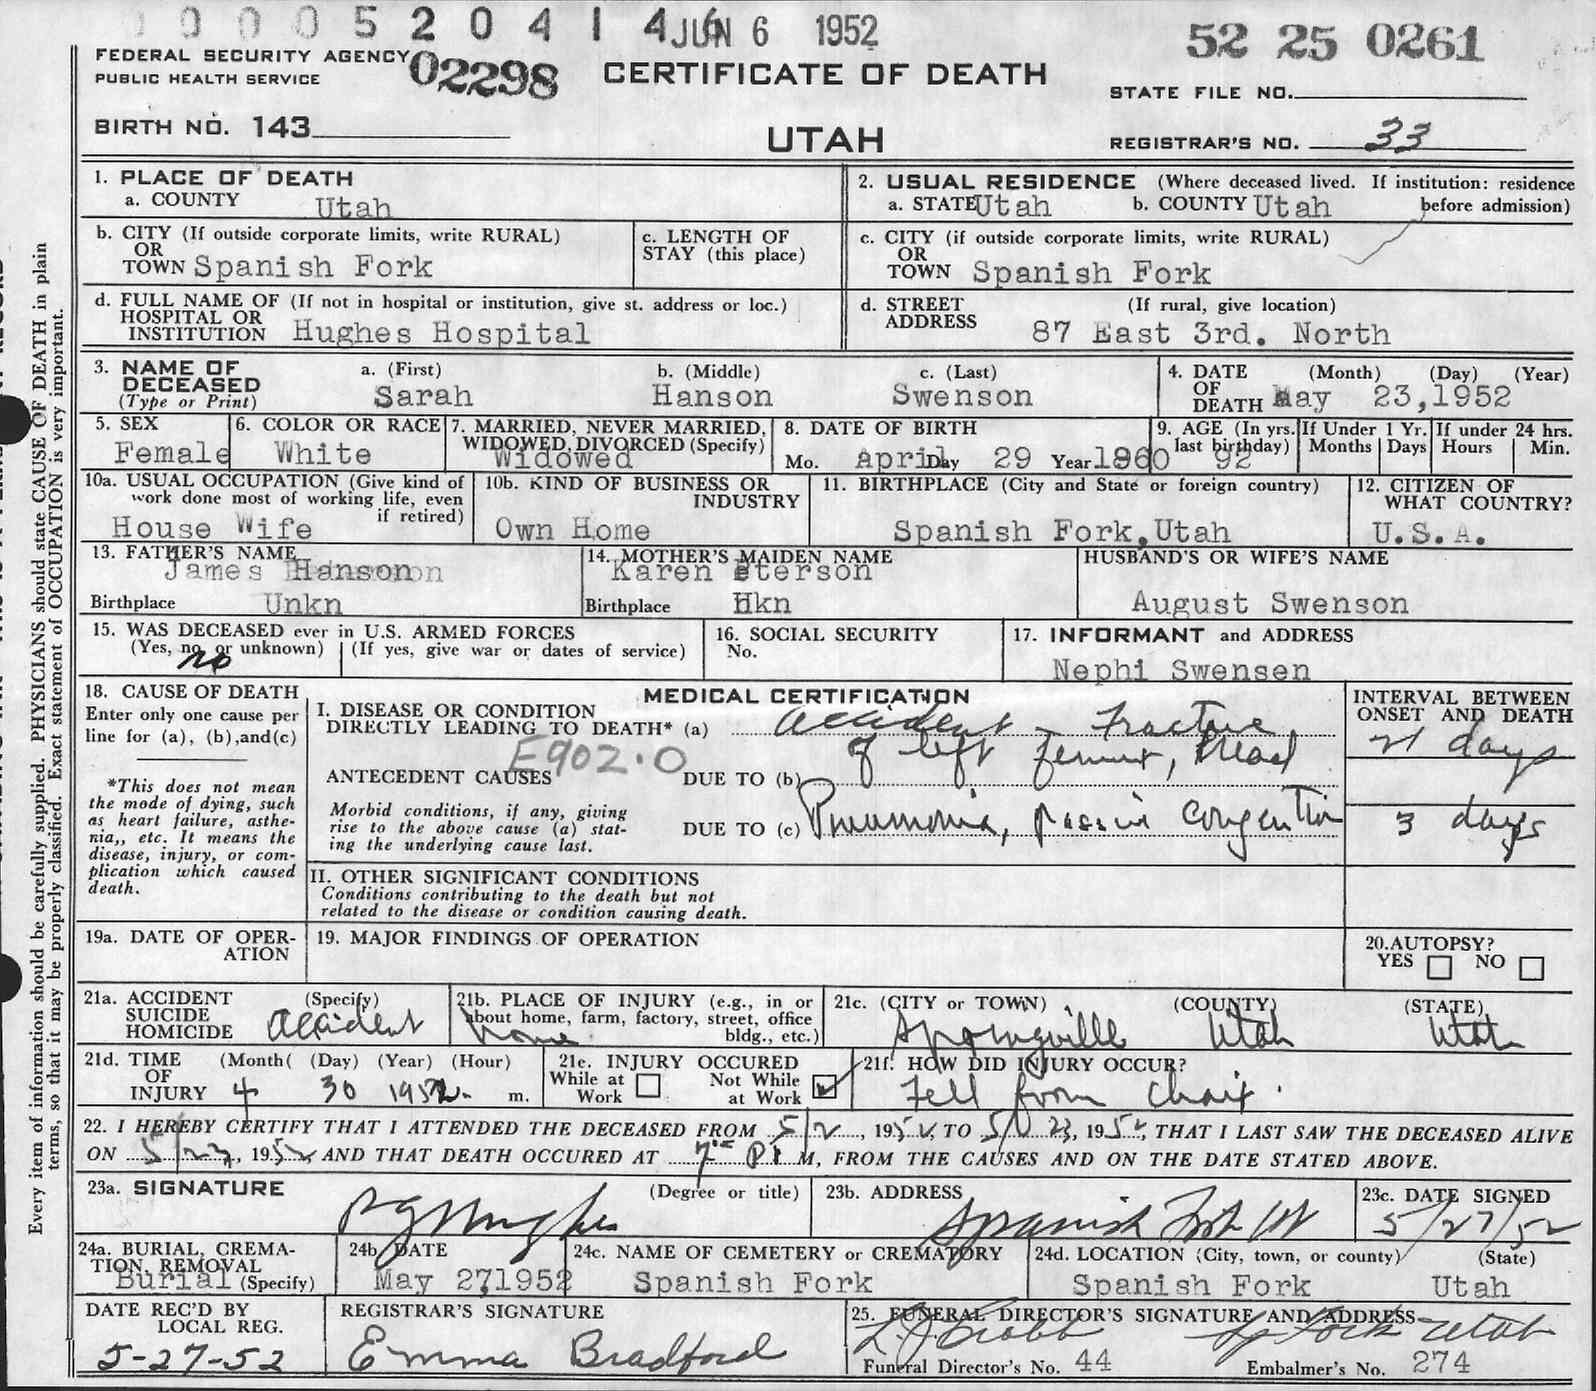 0 0 0 0 5 2 0 4 1 4 6 JUN 6 1952
52 25 0261
FEDERAL SECURITY AGENCY
PUBLIC HEALTH SERVICE
02298
CERTIFICATE OF DEATH
STATE FILE NO.
BIRTH NO. 143
UTAH
REGISTRAR'S NO. 33
1. PLACE OF DEATH
a. COUNTY Utah
2. USUAL RESIDENCE (Where deceased lived. If institution: residence
a. STATE Utah b. COUNTY Utah before admission)
b. CITY (If outside corporate limits, write RURAL)
OR
TOWN Spanish Fork
c. LENGTH OF
STAY (this place)
c. CITY (if outside corporate limits, write RURAL)
OR
TOWN Spanish Fork
d. FULL NAME OF (If not in hospital or institution, give st. address or loc.)
HOSPITAL OR
INSTITUTION Hughes Hospital
d. STREET (If rural, give location)
ADDRESS 87 East 3rd. North
3. NAME OF
DECEASED
(Type or Print)
a. (First)
Sarah
b. (Middle)
Hanson
c. (Last)
Swenson
4. DATE (Month) (Day) (Year)
OF
DEATH May 23,1952
5. SEX
Female
6. COLOR OR RACE
White
7. MARRIED, NEVER MARRIED,
WIDOWED, DIVORCED (Specify)
Widowed
8. DATE OF BIRTH
Mo. April Day 29 Year 1860
9. AGE (In yrs.
last birthday)
92
If Under 1 Yr.
Months Days
If under 24 hrs.
Hours Min.
10a. USUAL OCCUPATION (Give kind of
work done most of working life, even
if retired)
House Wife
10b. KIND OF BUSINESS OR
INDUSTRY
Own Home
11. BIRTHPLACE (City and State or foreign country)
Spanish Fork,Utah
12. CITIZEN OF
WHAT COUNTRY?
U.S.A.
13. FATHER'S NAME
James Hanson
Birthplace Unkn
14. MOTHER'S MAIDEN NAME
Karen eterson
Birthplace Hkn
HUSBAND'S OR WIFE'S NAME
August Swenson
15. WAS DECEASED ever in U.S. ARMED FORCES
(Yes, no, or unknown) (If yes, give war or dates of service)
no
16. SOCIAL SECURITY
No.
17. INFORMANT and ADDRESS
Nephi Swensen
18. CAUSE OF DEATH
Enter only one cause per
line for (a), (b),and(c)
*This does not mean
the mode of dying, such
as heart failure, asthe-
nia,, etc. It means the
disease, injury, or com-
plication which caused
death.
MEDICAL CERTIFICATION
I. DISEASE OR CONDITION
DIRECTLY LEADING TO DEATH* (a) accident - Fracture
of left femur, head
E902.0
ANTECEDENT CAUSES DUE TO (b)
Morbid conditions, if any, giving
rise to the above cause (a) stat-
ing the underlying cause last.
DUE TO (c) Pneumonia, passive congestion
INTERVAL BETWEEN
ONSET AND DEATH
21 days
3 days
II. OTHER SIGNIFICANT CONDITIONS
Conditions contributing to the death but not
related to the disease or condition causing death.
19a. DATE OF OPER-
ATION
19. MAJOR FINDINGS OF OPERATION
20.AUTOPSY?
YES NO
21a. ACCIDENT (Specify)
SUICIDE
HOMICIDE accident
21b. PLACE OF INJURY (e.g., in or
about home, farm, factory, street, office
bldg., etc.)
home
21c. (CITY or TOWN) (COUNTY) (STATE)
Springville Utah Utah
21d. TIME (Month( (Day) (Year) (Hour)
OF
INJURY 4 30 1952 m.
21e. INJURY OCCURED
While at Not While
Work at Work
21f. HOW DID INJURY OCCUR?
Fell from chair.
22. I HEREBY CERTIFY THAT I ATTENDED THE DECEASED FROM 5/2, 1952, TO 5/23, 1952, THAT I LAST SAW THE DECEASED ALIVE
ON 5/23, 1952 AND THAT DEATH OCCURED AT 7 P M, FROM THE CAUSES AND ON THE DATE STATED ABOVE.
23a. SIGNATURE (Degree or title)
Hughes
23b. ADDRESS
Spanish Fork Ut
23c. DATE SIGNED
5/27/52
24a. BURIAL, CREMA-
TION, REMOVAL
Burial (Specify)
24b. DATE
May 27,1952
24c. NAME OF CEMETERY or CREMATORY
Spanish Fork
24d. LOCATION (City, town, or county) (State)
Spanish Fork Utah
DATE REC'D BY
LOCAL REG.
5-27-52
REGISTRAR'S SIGNATURE
Emma Bradford
25. FUNERAL DIRECTOR'S SIGNATURE AND ADDRESS
Sp Fork Utah
Funeral Director's No. 44 Embalmer's No. 274
Every item of information should be carefully supplied. PHYSICIANS should state CAUSE OF DEATH in plain
terms, so that it may be properly classified. Exact statement of OCCUPATION is very important.